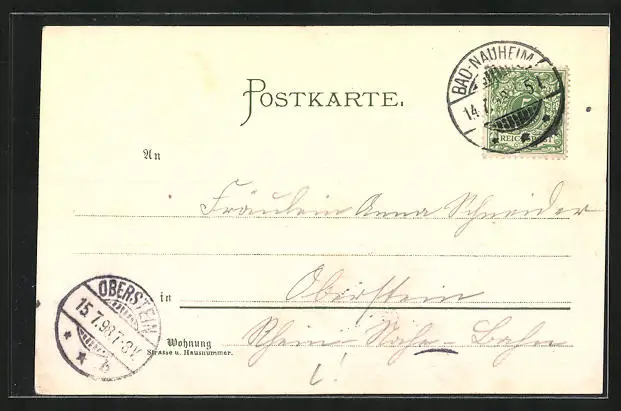 BAD-NAUHEIM
14.7.98. 5-
REICHSPOST
POSTKARTE.
An
Fräulein Anna Schneider
in Oberstein
OBERSTEIN
15.7.98.7-8V.
Wohnung
Strasse u. Hausnummer.
Rhein-Nahe-Bahn